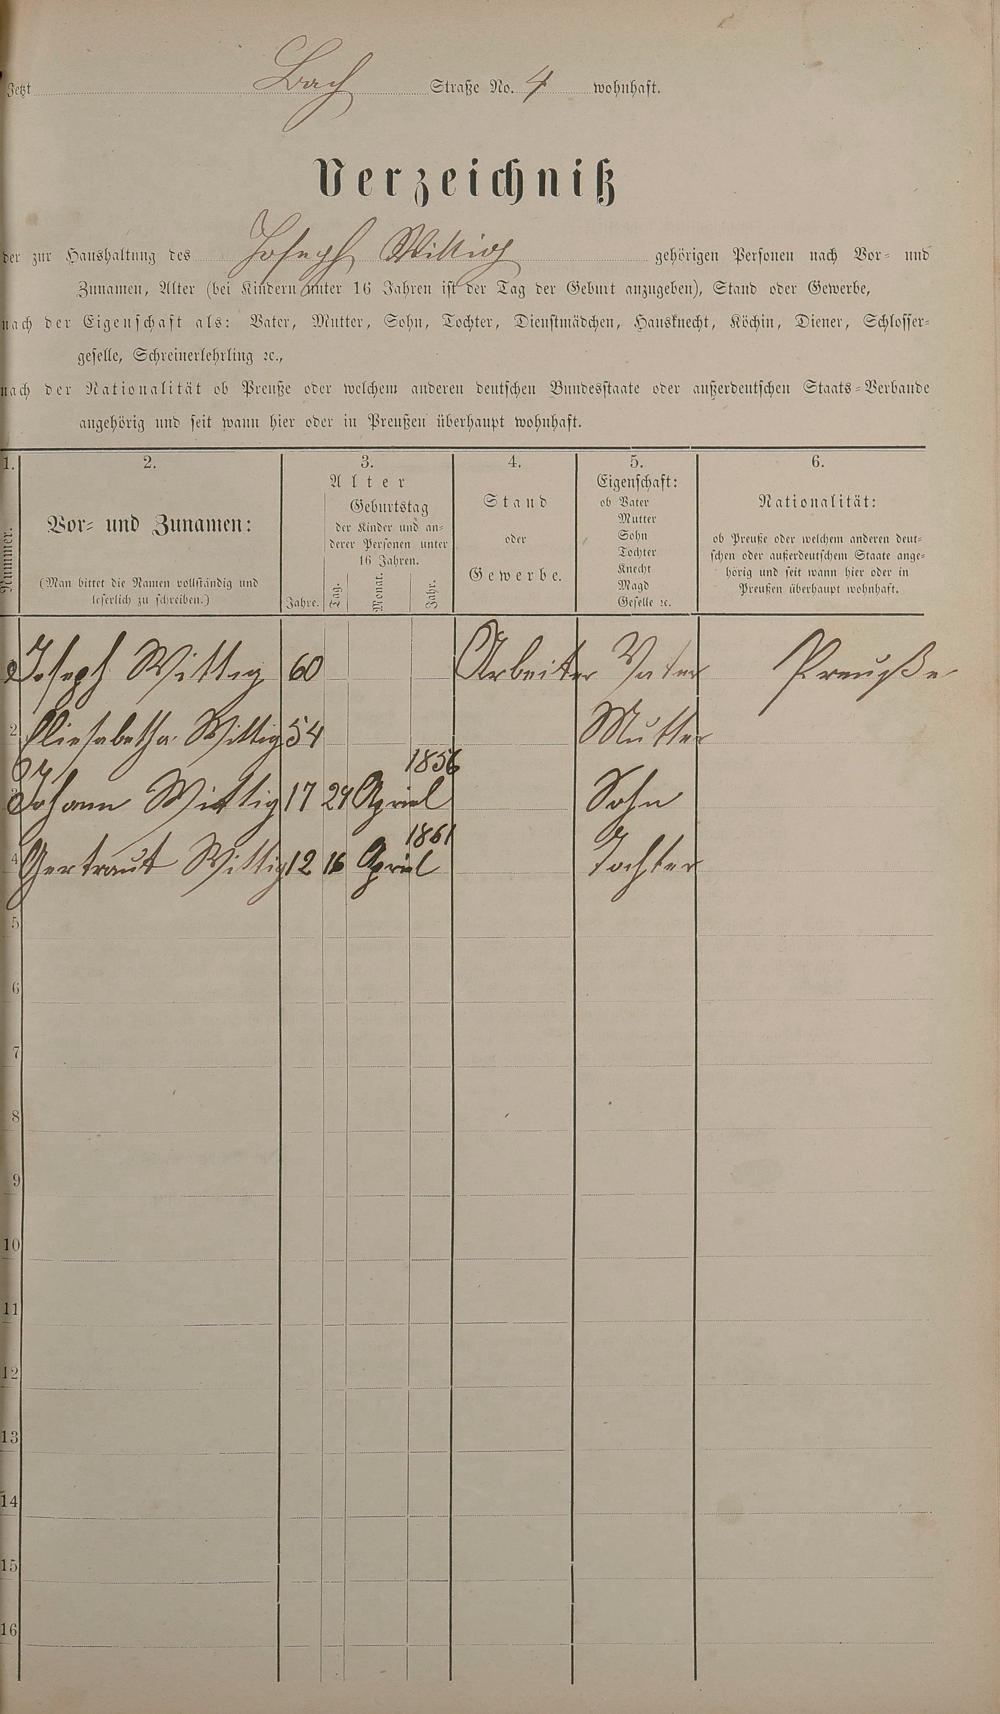 Jetzt Bach Straße No. 4 wohnhaft.
Verzeichniß
der zur Haushaltung des Joseph Wittig gehörigen Personen nach Vor- und
Zunamen, Alter (bei Kindern unter 16 Jahren ist der Tag der Geburt anzugeben), Stand oder Gewerbe,
nach der Eigenschaft als: Vater, Mutter, Sohn, Tochter, Dienstmädchen, Hausknecht, Köchin, Diener, Schlosser-
geselle, Schreinerlehrling ꝛc.,
nach der Nationalität ob Preuße oder welchem anderen deutschen Bundesstaate oder außerdeutschen Staats-Verbande
angehörig und seit wann hier oder in Preußen überhaupt wohnhaft.
1. 2. 3. 4. 5. 6.
Nummer.
Vor- und Zunamen:
(Man bittet die Namen vollständig und
leserlich zu schreiben.)
Alter
Geburtstag
der Kinder und an-
derer Personen unter
16 Jahren.
Jahre. Tag. Monat. Jahr.
Stand
oder
Gewerbe.
Eigenschaft:
ob Vater
Mutter
Sohn
Tochter
Knecht
Magd
Geselle ꝛc.
Nationalität:
ob Preuße oder welchem anderen deut-
schen oder außerdeutschem Staate ange-
hörig und seit wann hier oder in
Preußen überhaupt wohnhaft.
Joseph Wittig 60 Arbeiter Vater Preuße
2 Eliesabetha Wittig 54 Mutter
3 Johann Wittig 17 29 Apriel 1856 Sohn
4 Gertraut Wittig 12 16 Apriel 1861 Tochter
5
6
7
8
9
10
11
12
13
14
15
16